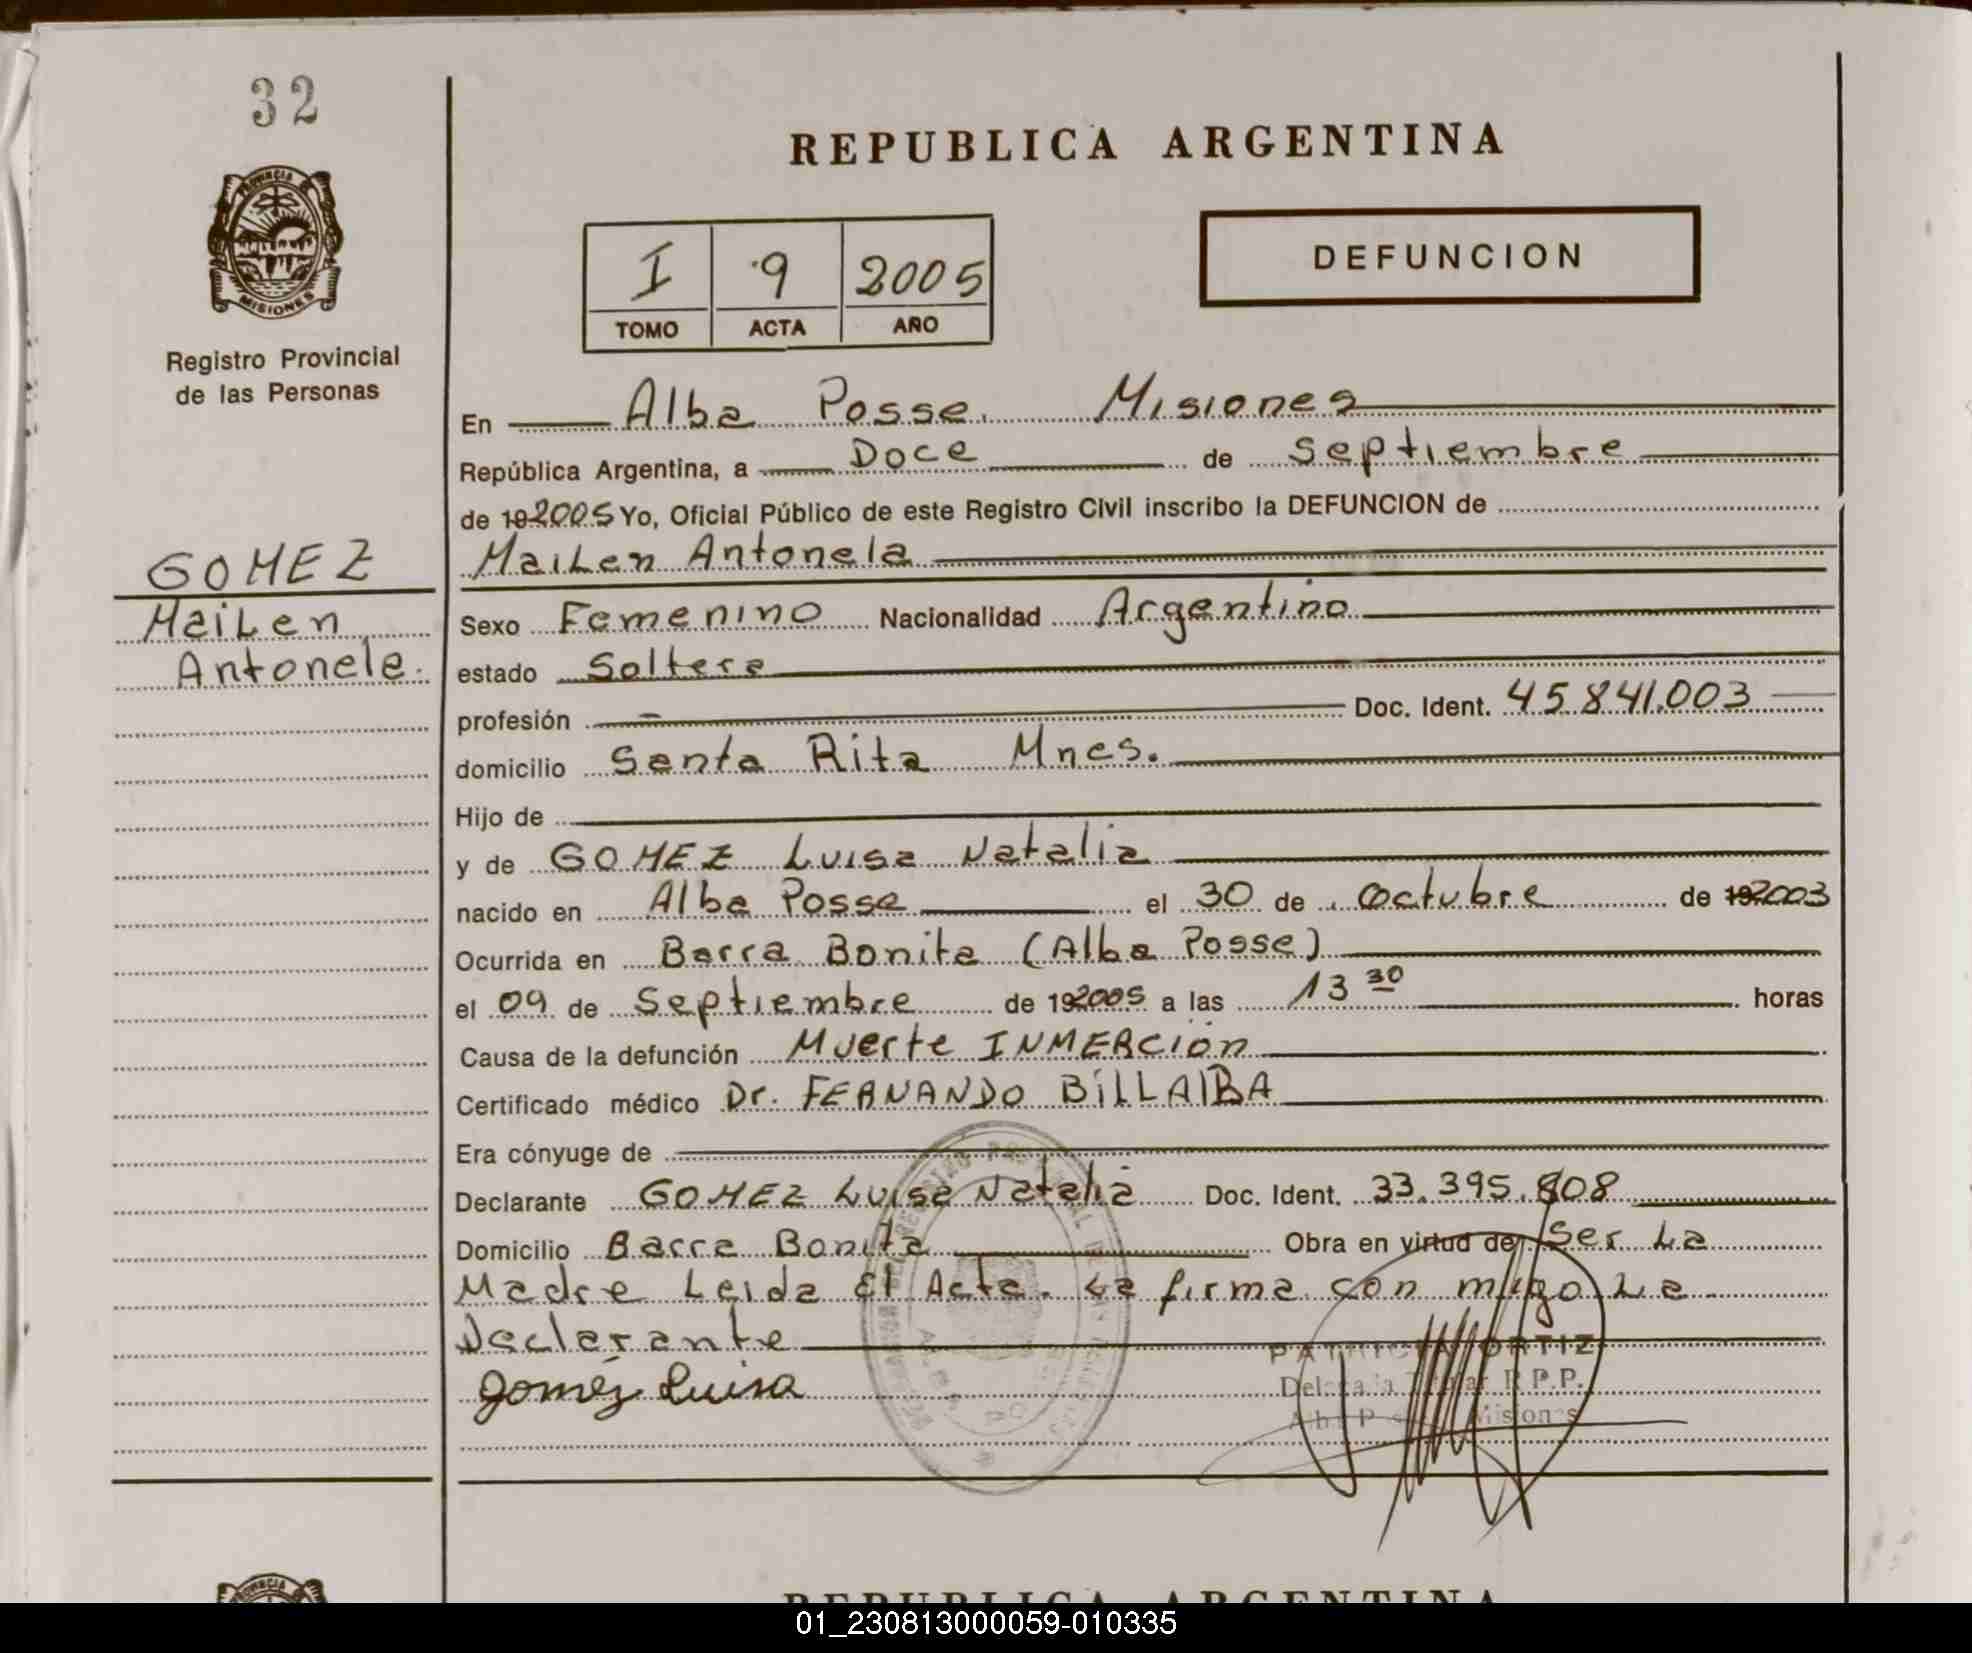 32
PROVINCIA DE
MISIONES
Registro Provincial
de las Personas
GOMEZ
MaiLen
Antonela.
REPUBLICA ARGENTINA
I 9 2005
TOMO ACTA AÑO
DEFUNCION
En Alba Posse. Misiones
República Argentina, a Doce de Septiembre
de 19 2005 Yo, Oficial Público de este Registro Civil inscribo la DEFUNCION de
MaiLen Antonela
Sexo Femenino Nacionalidad Argentino
estado Soltera
profesión — Doc. Ident. 45.841.003
domicilio Santa Rita Mnes.
Hijo de
y de GOMEZ Luisa Natalia
nacido en Alba Posse el 30 de Octubre de 19 2003
Ocurrida en Barra Bonita (Alba Posse)
el 09 de Septiembre de 19 2005 a las 13 30 horas
Causa de la defunción Muerte INMERCION
Certificado médico Dr. FERNANDO BILLALBA
Era cónyuge de
Declarante GOMEZ Luisa Natalia Doc. Ident. 33.395.808
Domicilio Barra Bonita Obra en virtud de Ser La
Madre Leida El Acta. La firma con migo La
Declarante
Gomez Luisa
PATRICIA ORTIZ
Delegada Titular R.P.P.
Alba Posse Misiones
REPUBLICA ARGENTINA
01_230813000059-010335